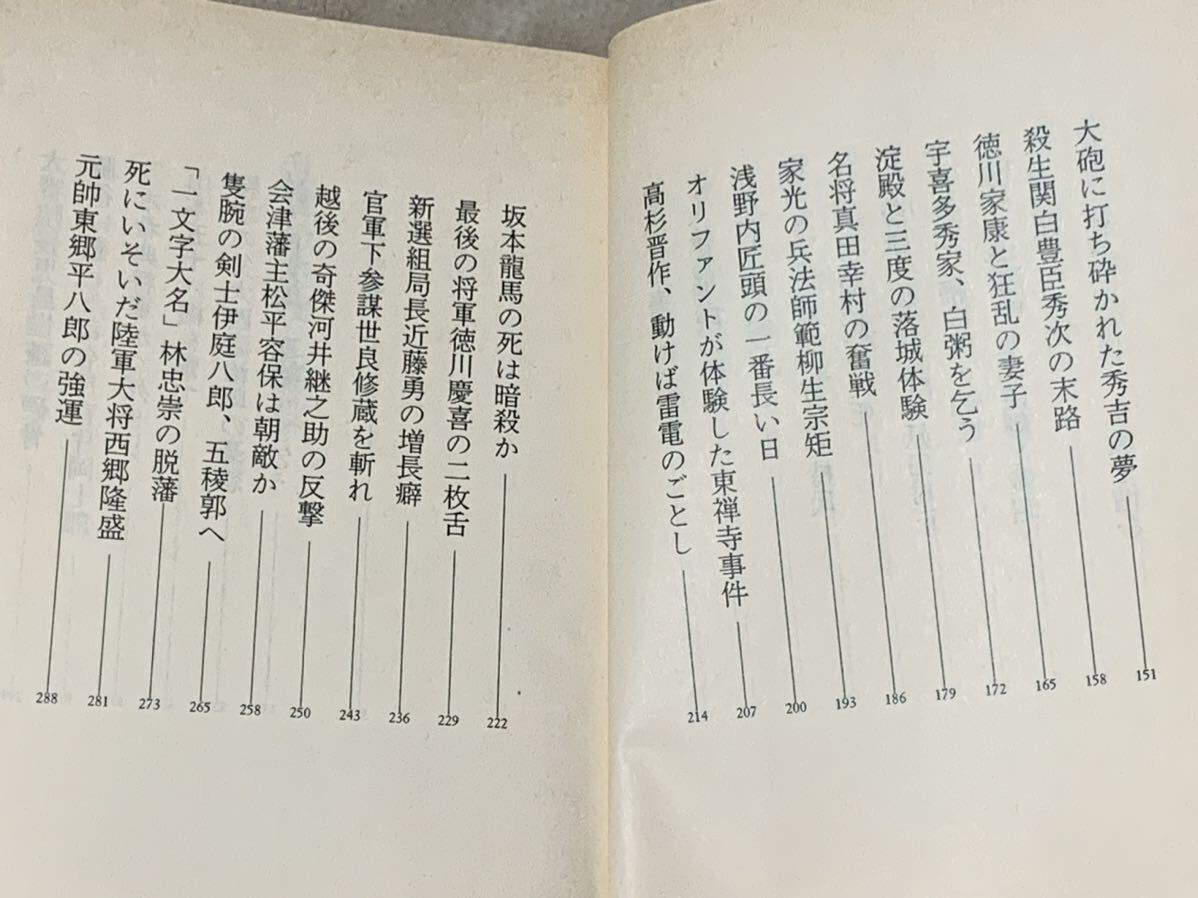 大砲に打ち砕かれた秀吉の夢 151
殺生関白豊臣秀次の末路 158
徳川家康と狂乱の妻子 165
宇喜多秀家、白粥を乞う 172
淀殿と三度の落城体験 179
名将真田幸村の奮戦 186
家光の兵法師範柳生宗矩 193
浅野内匠頭の一番長い日 200
オリファントが体験した東禅寺事件 207
高杉晋作、動けば雷電のごとし 214
坂本龍馬の死は暗殺か 222
最後の将軍徳川慶喜の二枚舌 229
新選組局長近藤勇の増長癖 236
官軍下参謀世良修蔵を斬れ 243
越後の奇傑河井継之助の反撃 250
会津藩主松平容保は朝敵か 258
隻腕の剣士伊庭八郎、五稜郭へ 265
「一文字大名」林忠崇の脱藩 273
死にいそいだ陸軍大将西郷隆盛 281
元帥東郷平八郎の強運 288